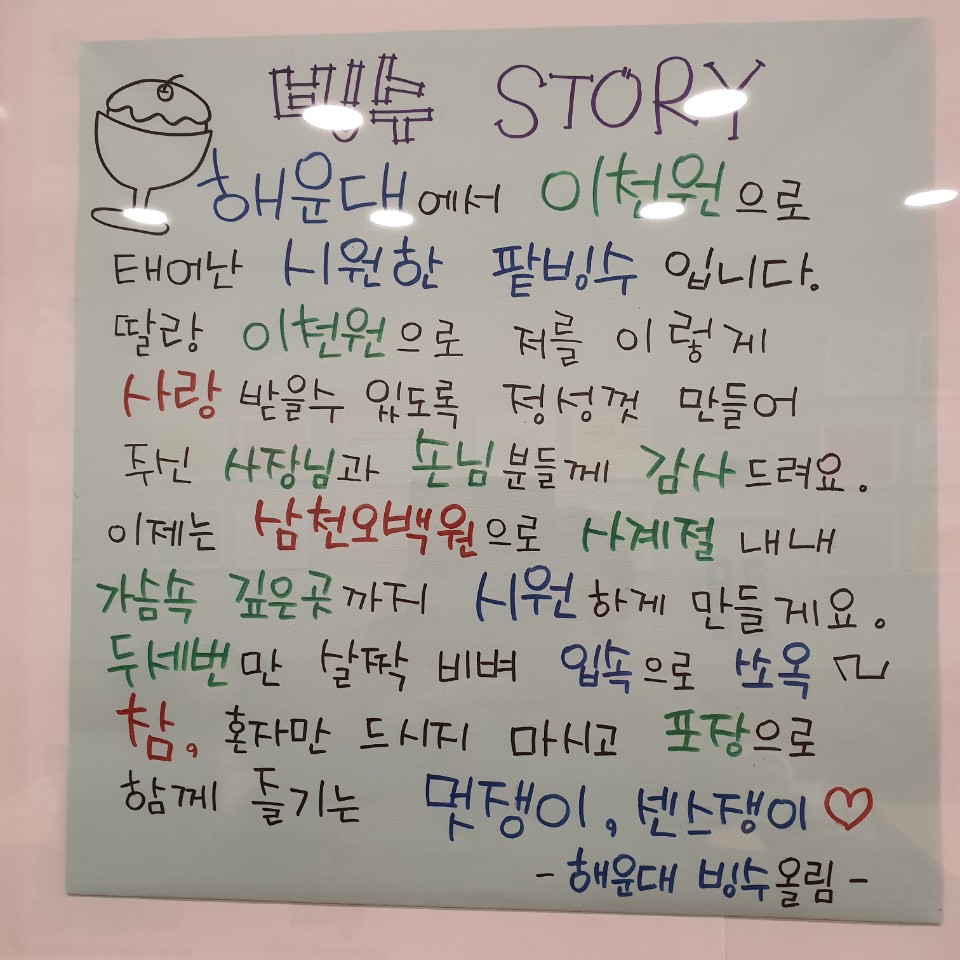 빙수 STORY
해운대에서 이천원으로
태어난 시원한 팥빙수 입니다.
딸랑 이천원으로 저를 이렇게
사랑 받을수 있도록 정성껏 만들어
주신 사장님과 손님분들께 감사드려요.
이제는 삼천오백원으로 사계절 내내
가슴속 깊은곳까지 시원하게 만들게요.
두세번만 살짝 비벼 입속으로 쏘옥
참, 혼자만 드시지 마시고 포장으로
함께 즐기는 멋쟁이, 센스쟁이♡
- 해운대 빙수올림 -